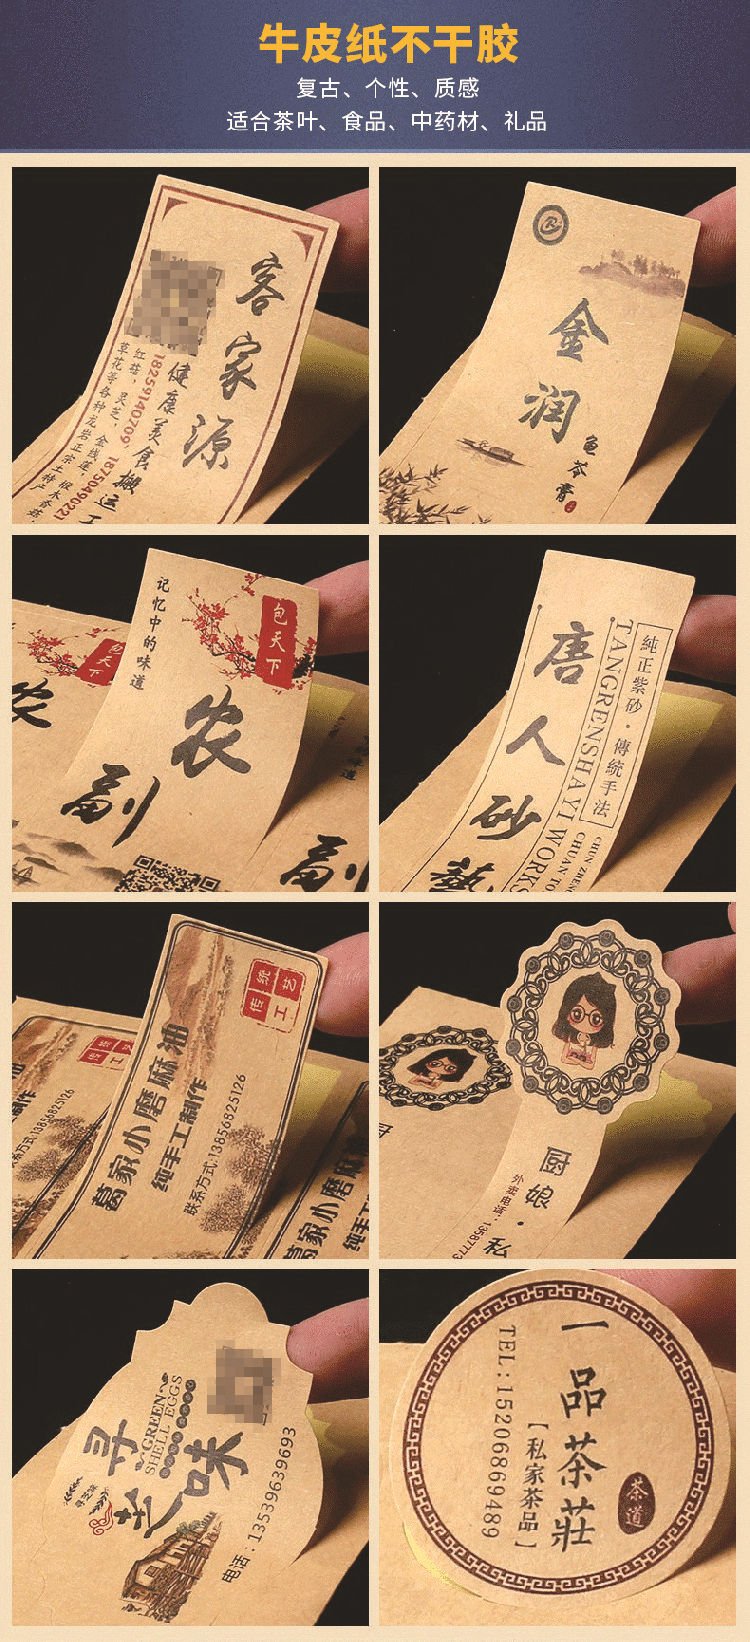 牛皮纸不干胶
复古、个性、质感
适合茶叶、食品、中药材、礼品
客家源
健康美食搬运工
18259140709
金润
龟苓膏
记忆中的味道
包天下
农副
包天下
农
副
唐人砂藝
TANGRENSHAYI WORKS
純正紫砂·傳統手法
CHUN ZHENG
CHUAN TO
传统工艺
葛家小磨麻油
纯手工制作
联系方式:13856825126
联系方式:13856825126
葛家小磨麻油
纯手工
厨娘·私
外卖电话:13587773
寻味
GREEN
SHELL EGGS
电话:13539639693
一品茶莊
【私家茶品】
TEL:15206869489
茶道